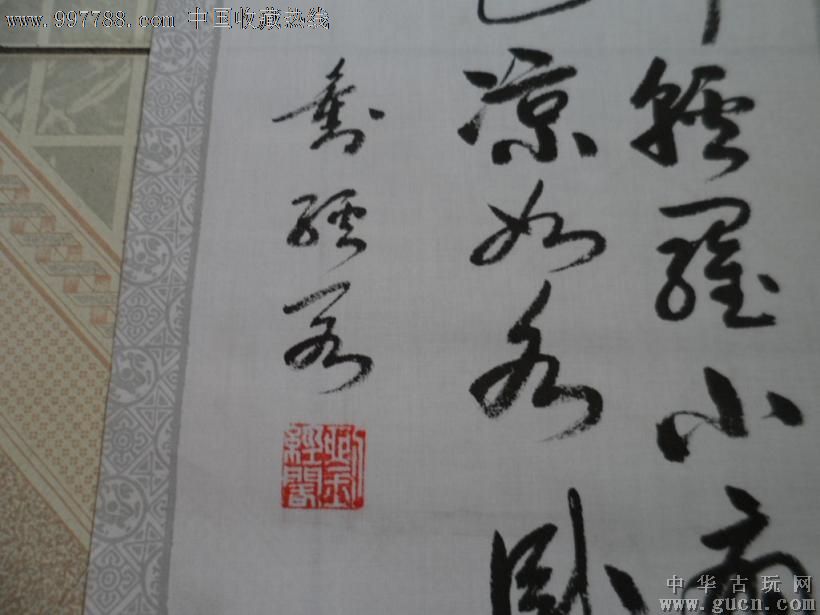 www.997788.com 中国收藏热线
輕羅小
凉如水卧
劉經
中华古玩网
www.gucn.com